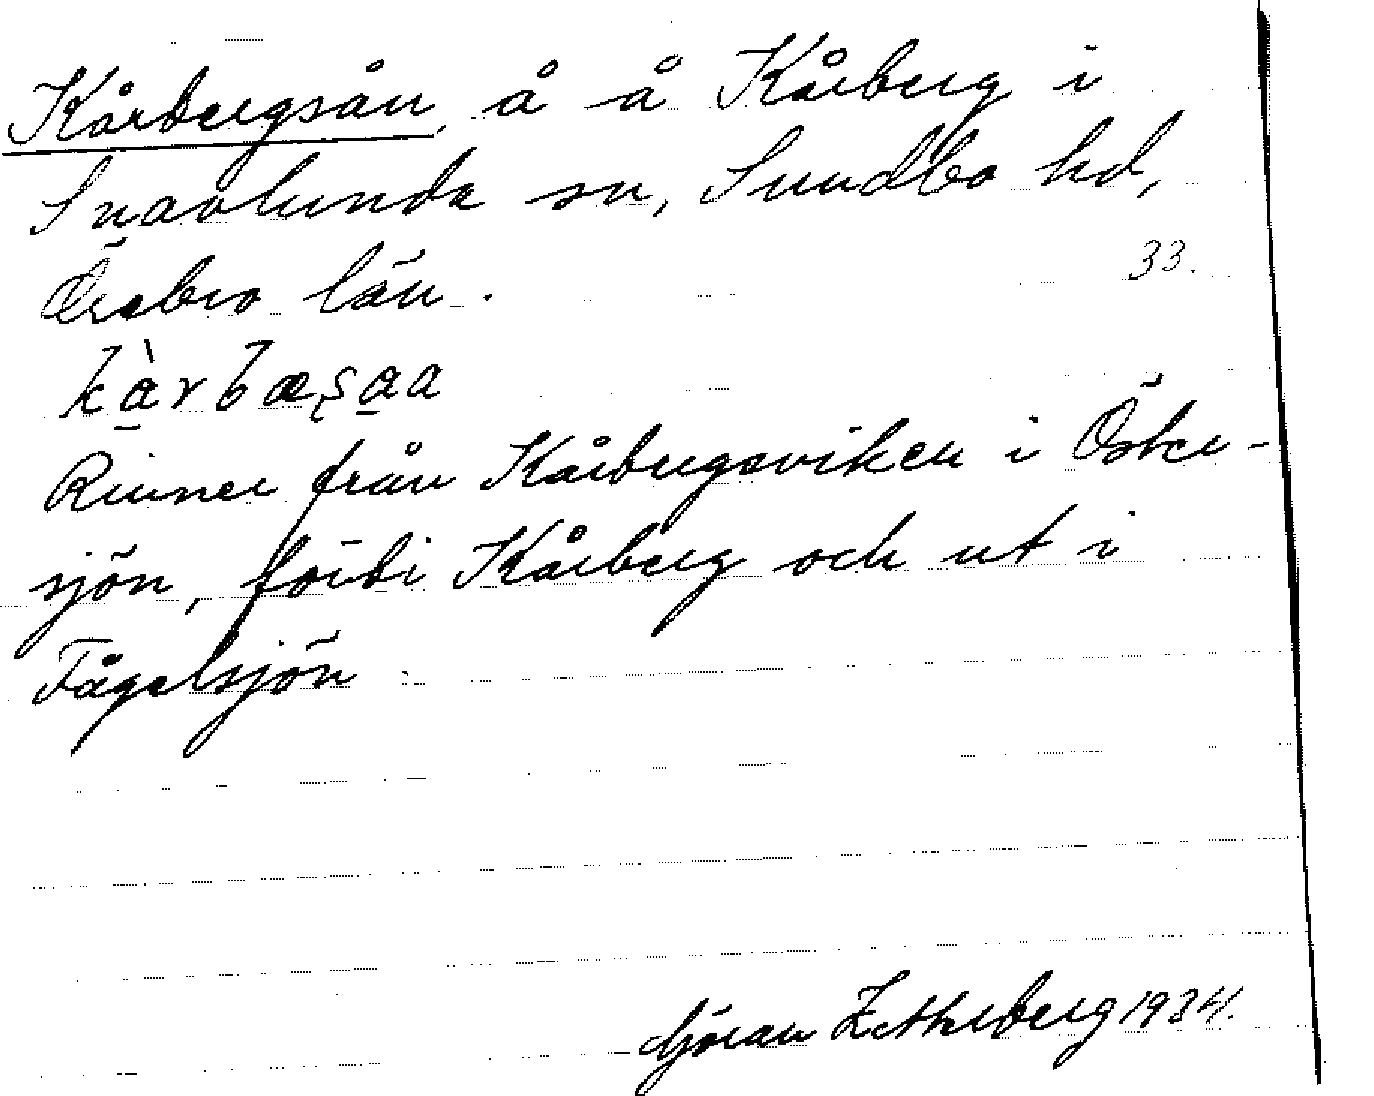 Kårbergsån, å å Kårberg i
Snavlunda sn, Sundbo hd,
Örebro län.
33.
kàrbæşaa
Rinner från Kårbergsviken i Öster-
sjön, förbi Kårberg och ut i
Fågelsjön.
Göran Zetherberg 1934.